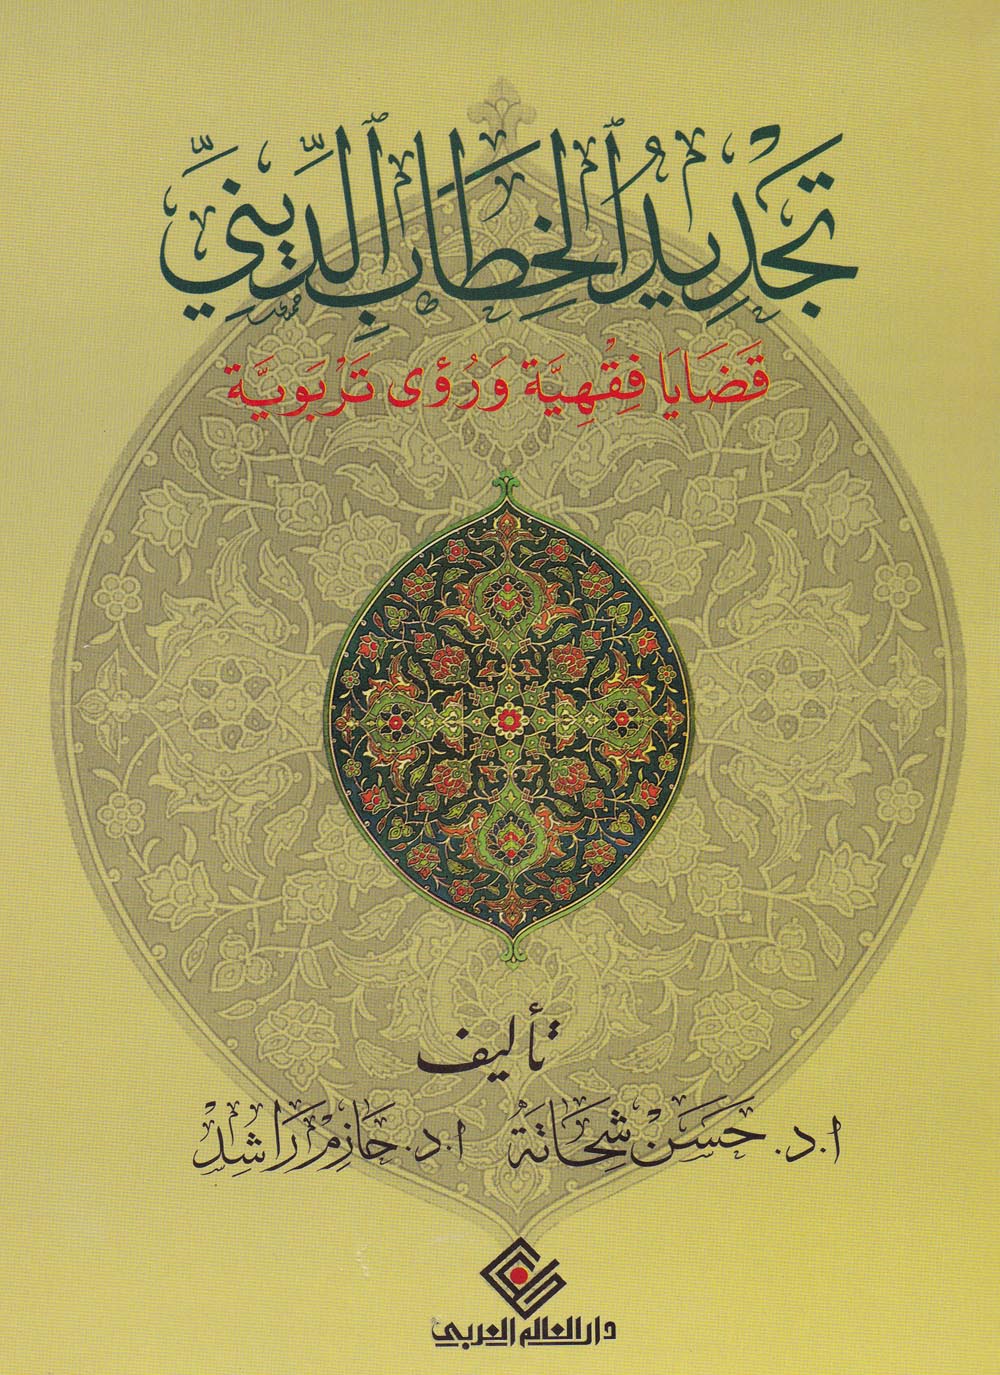 تَجْدِيدُ الْخِطَابِ الدِّينِيِّ
قَضَايَا فِقْهِيَّة وَرُؤى تَرْبَوِيَّة
تأليف
ا.د. حَسَنْ شِحَاتَةُ ا.د. حَازِمْ رَاشِدْ
دار العالم العربي